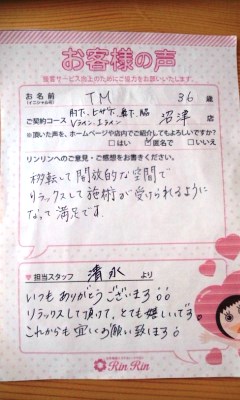 お客様の声
接客サービス向上のためにご協力をお願いいたします。
お名前 TM 36歳
(イニシャル可)
ご契約コース 肘下、ヒザ下、鼻下、脇 沼津店
Vライン、Iライン
※頂いた声を、ホームページや店内でご紹介してもよろしいですか?
□はい ☑匿名で □いいえ
リンリンへのご意見・ご感想をお書きください。
移転して開放的な空間で
リラックスして施術が受けられるように
なって満足です。
♥担当スタッフ 清水 より
いつもありがとうございます
リラックスして頂けて、とても嬉しいです。
これからも宜しくお願い致します
RinRin